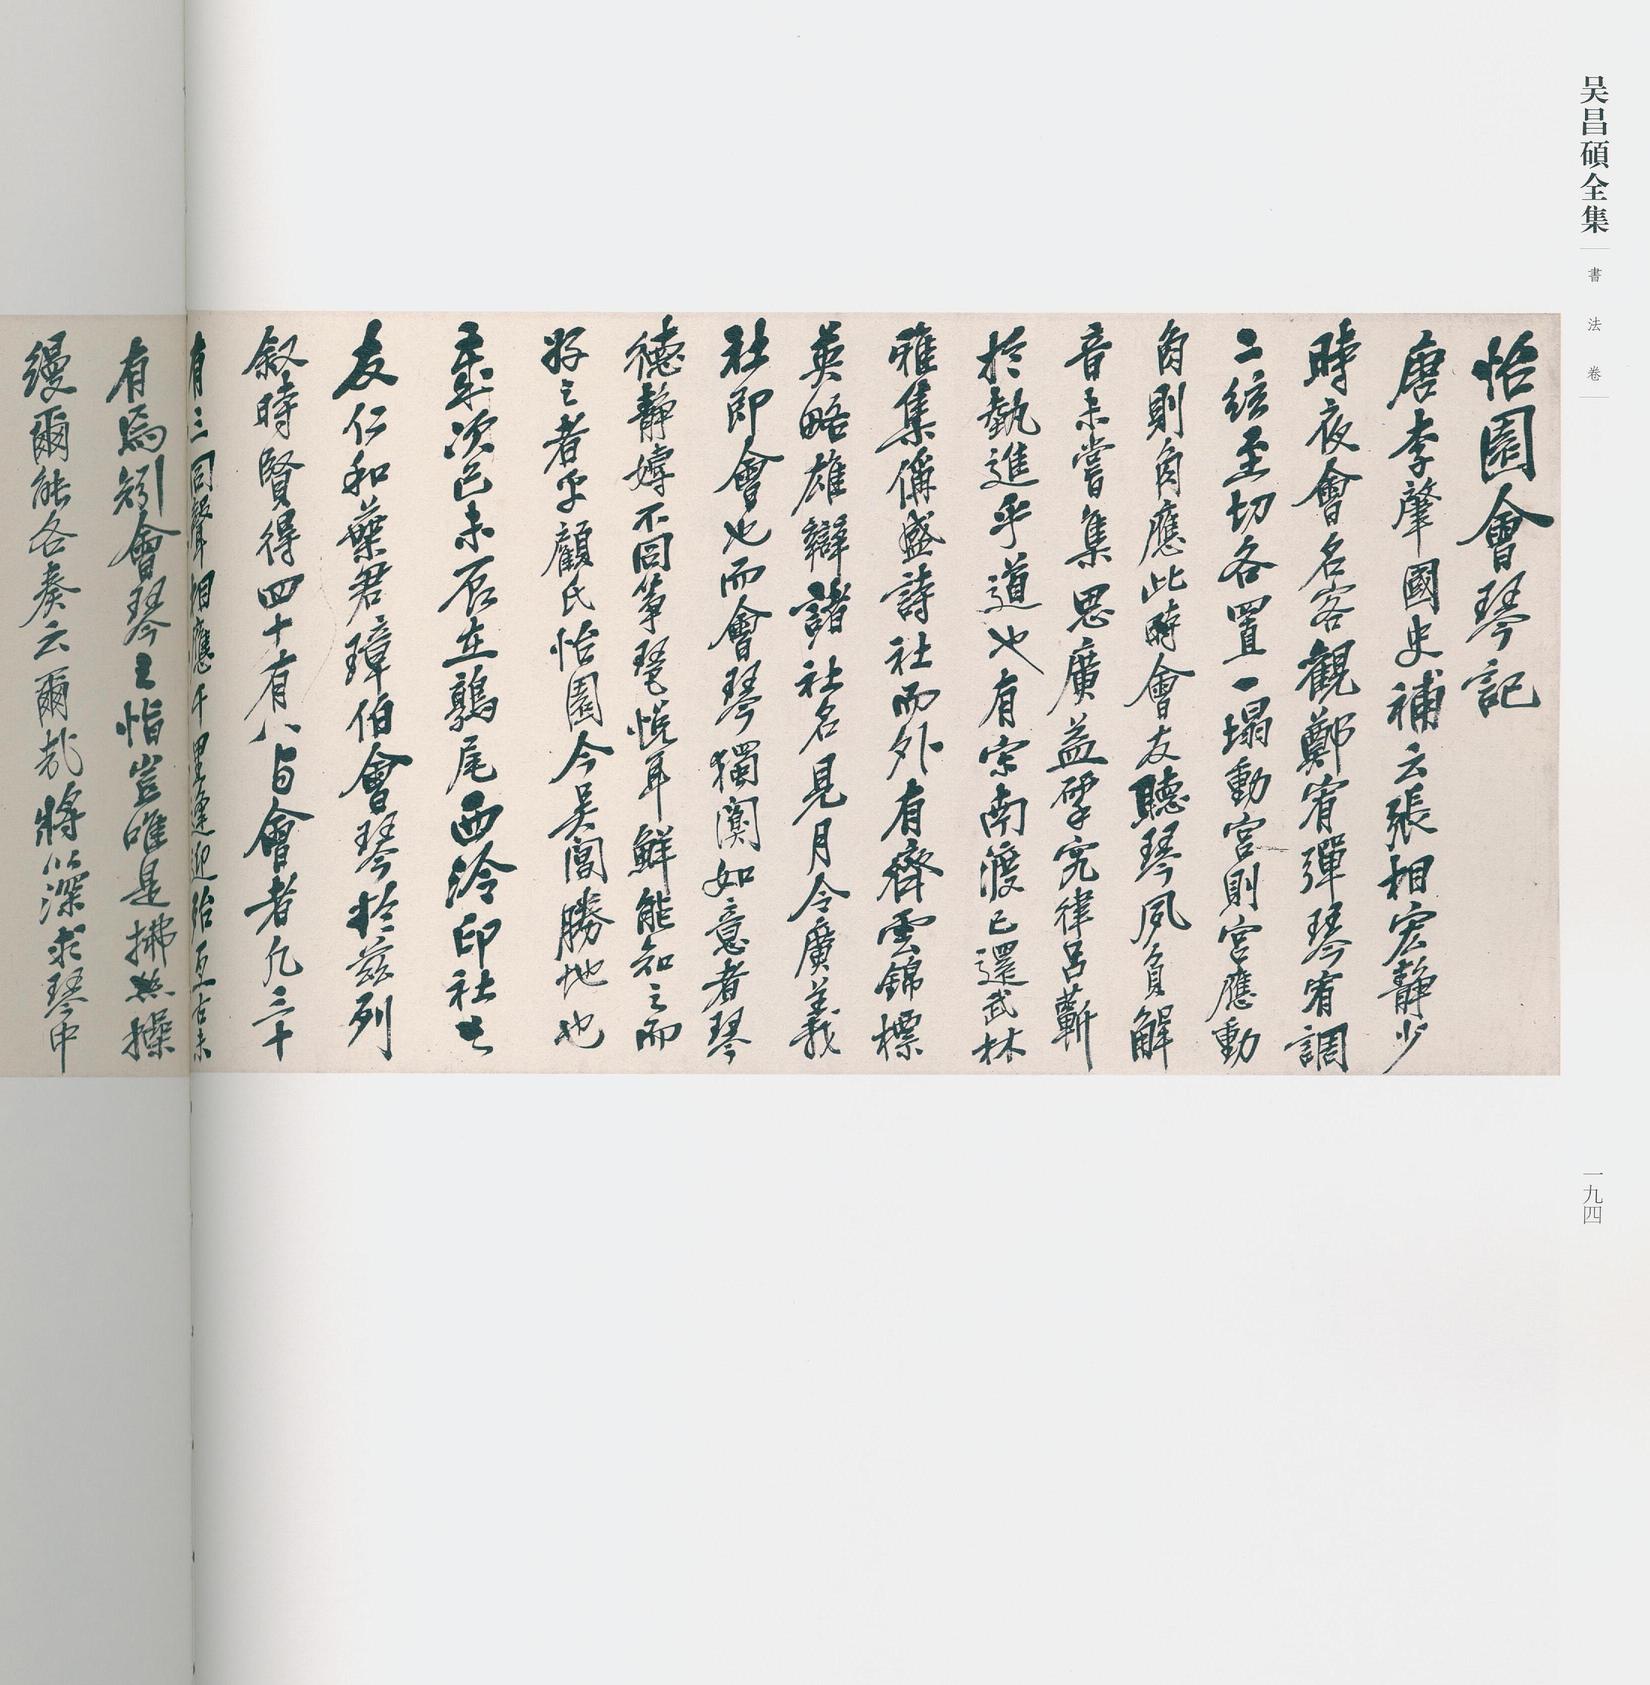 吴昌碩全集
書法卷
怡園會琴記
唐李肇國史補云張相宏靜少
時夜會名客觀鄭宥彈琴宥調
二絃至切各置一榻動宮則宮應動
角則角應此時會友聽琴夙負解
音未嘗集思廣益擘究律呂蘄
於執進乎道也有宋南渡已還武林
雅集偁盛詩社而外有齊雲錦標
英略雄辯諸社名見月令廣義
社即會也而會琴獨闃如意者琴
德靜嫥不同箏琶悅耳鮮能知之而
好之者乎顧氏怡園今吳閶勝地也
年次己未辰在鶉尾西泠印社
友仁和葉君璋伯會琴於茲列
叙時賢得四十有八与會者凡三十
有三同聲相應千里逢迎殆亙古未
有焉矧會琴之恉豈唯是拂絲操
縵爾能各奏云爾哉將以深求琴中
一九四